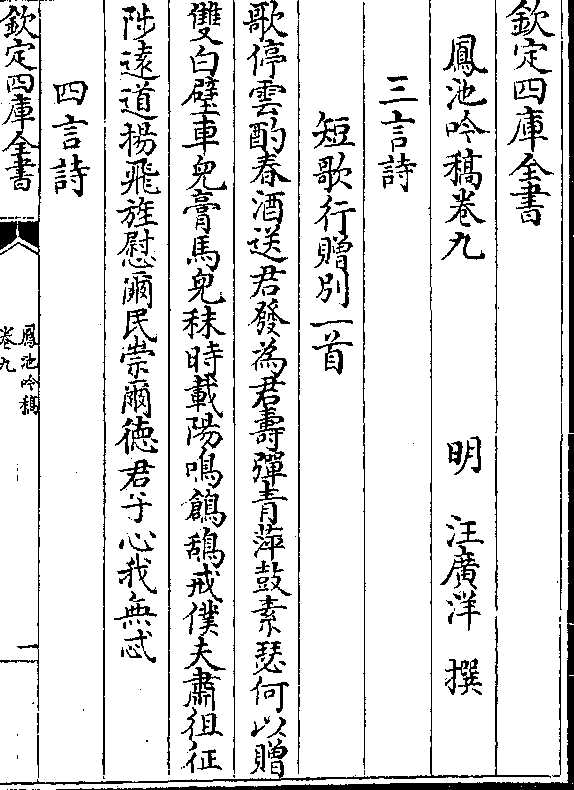 欽定四庫全書
鳳池吟稿卷九
明 汪廣洋 撰
三言詩
短歌行贈別一首
歌停雲酌春酒送君發為君壽彈青萍鼓素瑟何以贈
雙白璧車皃膏馬皃秣時載陽鳴鶬鴰戒僕夫肅徂征
陟遠道揚飛旌慰爾民崇爾德君子心我無忒
四言詩
欽定四庫全書
鳳池吟稿
卷九
一